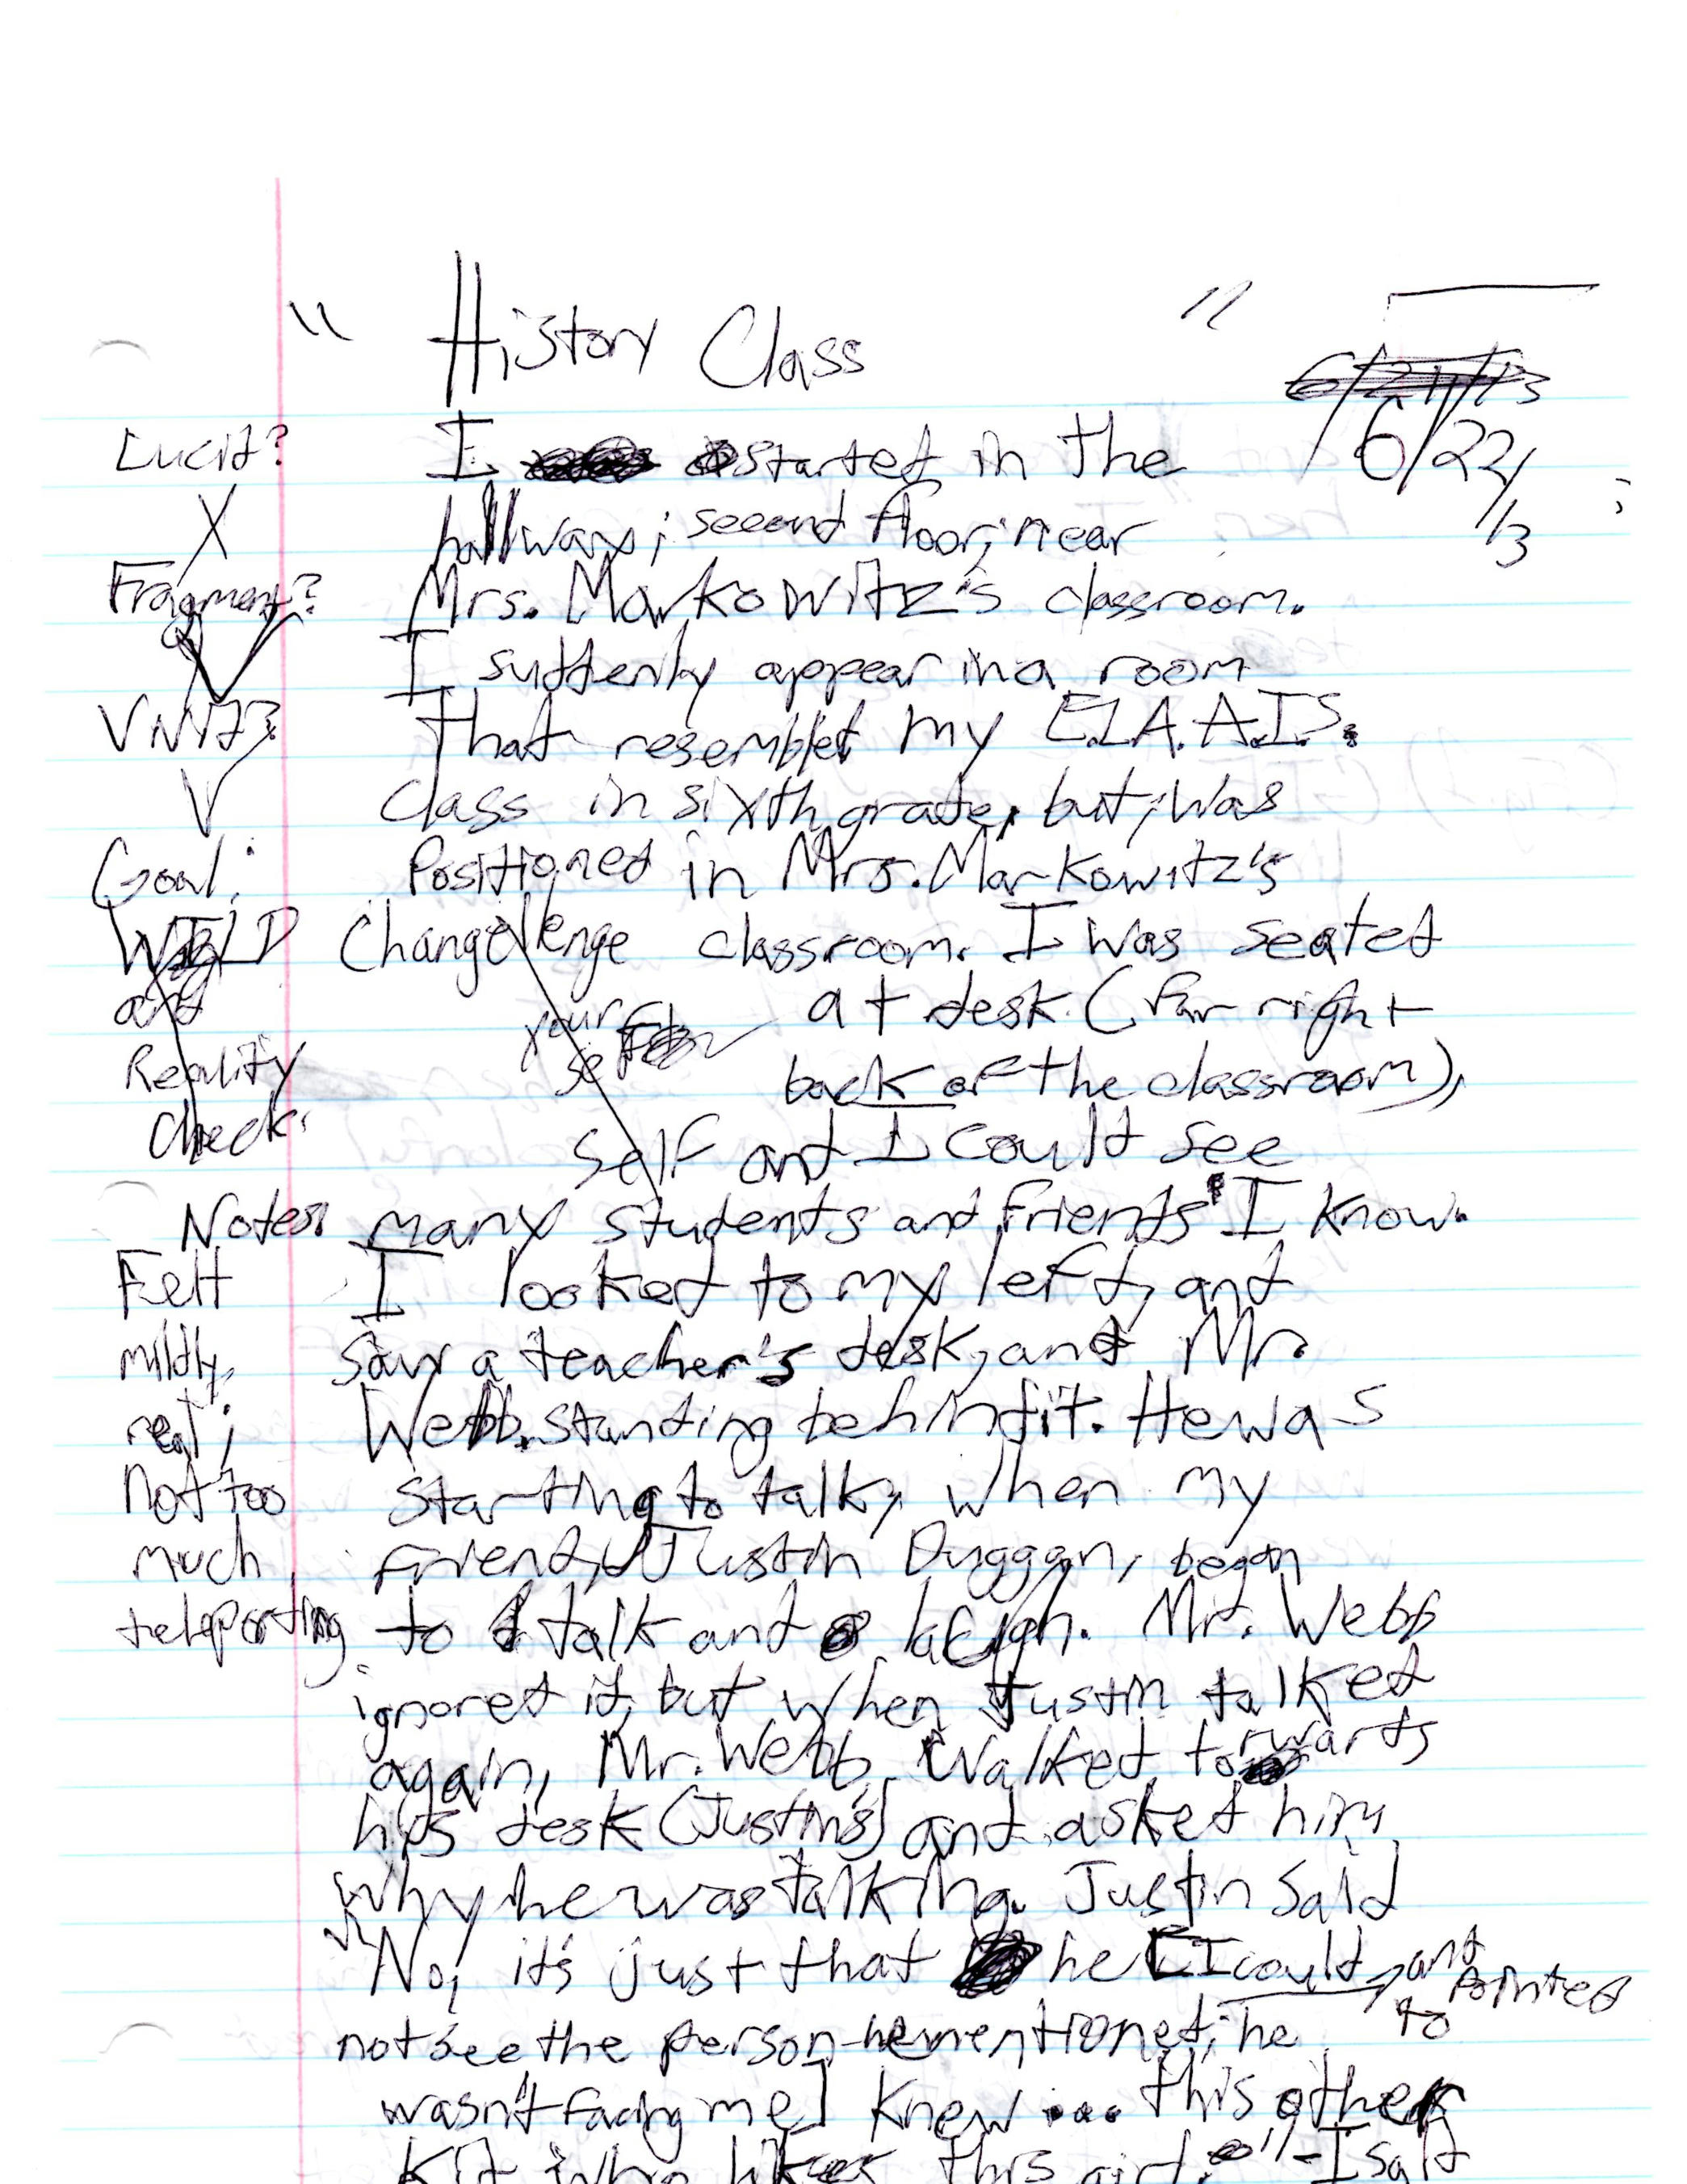 " History Class "
6/21/13
6/22/13
Lucid?
X
Fragment?
Vivid?
Goal:
WILD
and
Reality
Check.
Challenge
your
self
self
Notes:
Felt
mildly
real;
not too
much
teleporting
I started in the
hallway; second floor, near
Mrs. Markowitz's classroom.
I suddenly appear in a room
that resembled my E.I.A.A.I.S.
class in sixth grade, but, was
Positioned in Mrs. Markowitz's
classroom. I was seated
at desk (far right
back of the classroom),
and I could see
many students and friends I know.
I looked to my left, and
saw a teacher's desk, and Mr.
Webb standing behind it. He was
starting to talk, when my
friend, Justin Duggan, began
to talk and laugh. Mr. Webb
ignored it, but when Justin talked
again, Mr. Webb walked towards
his desk (Justin's) and asked him
why he was talking. Justin said
"No, it's just that he [I could, and pointed to
not see the person he mentioned; he
wasn't facing me] knew ... this other
kid who likes this girl." - I said